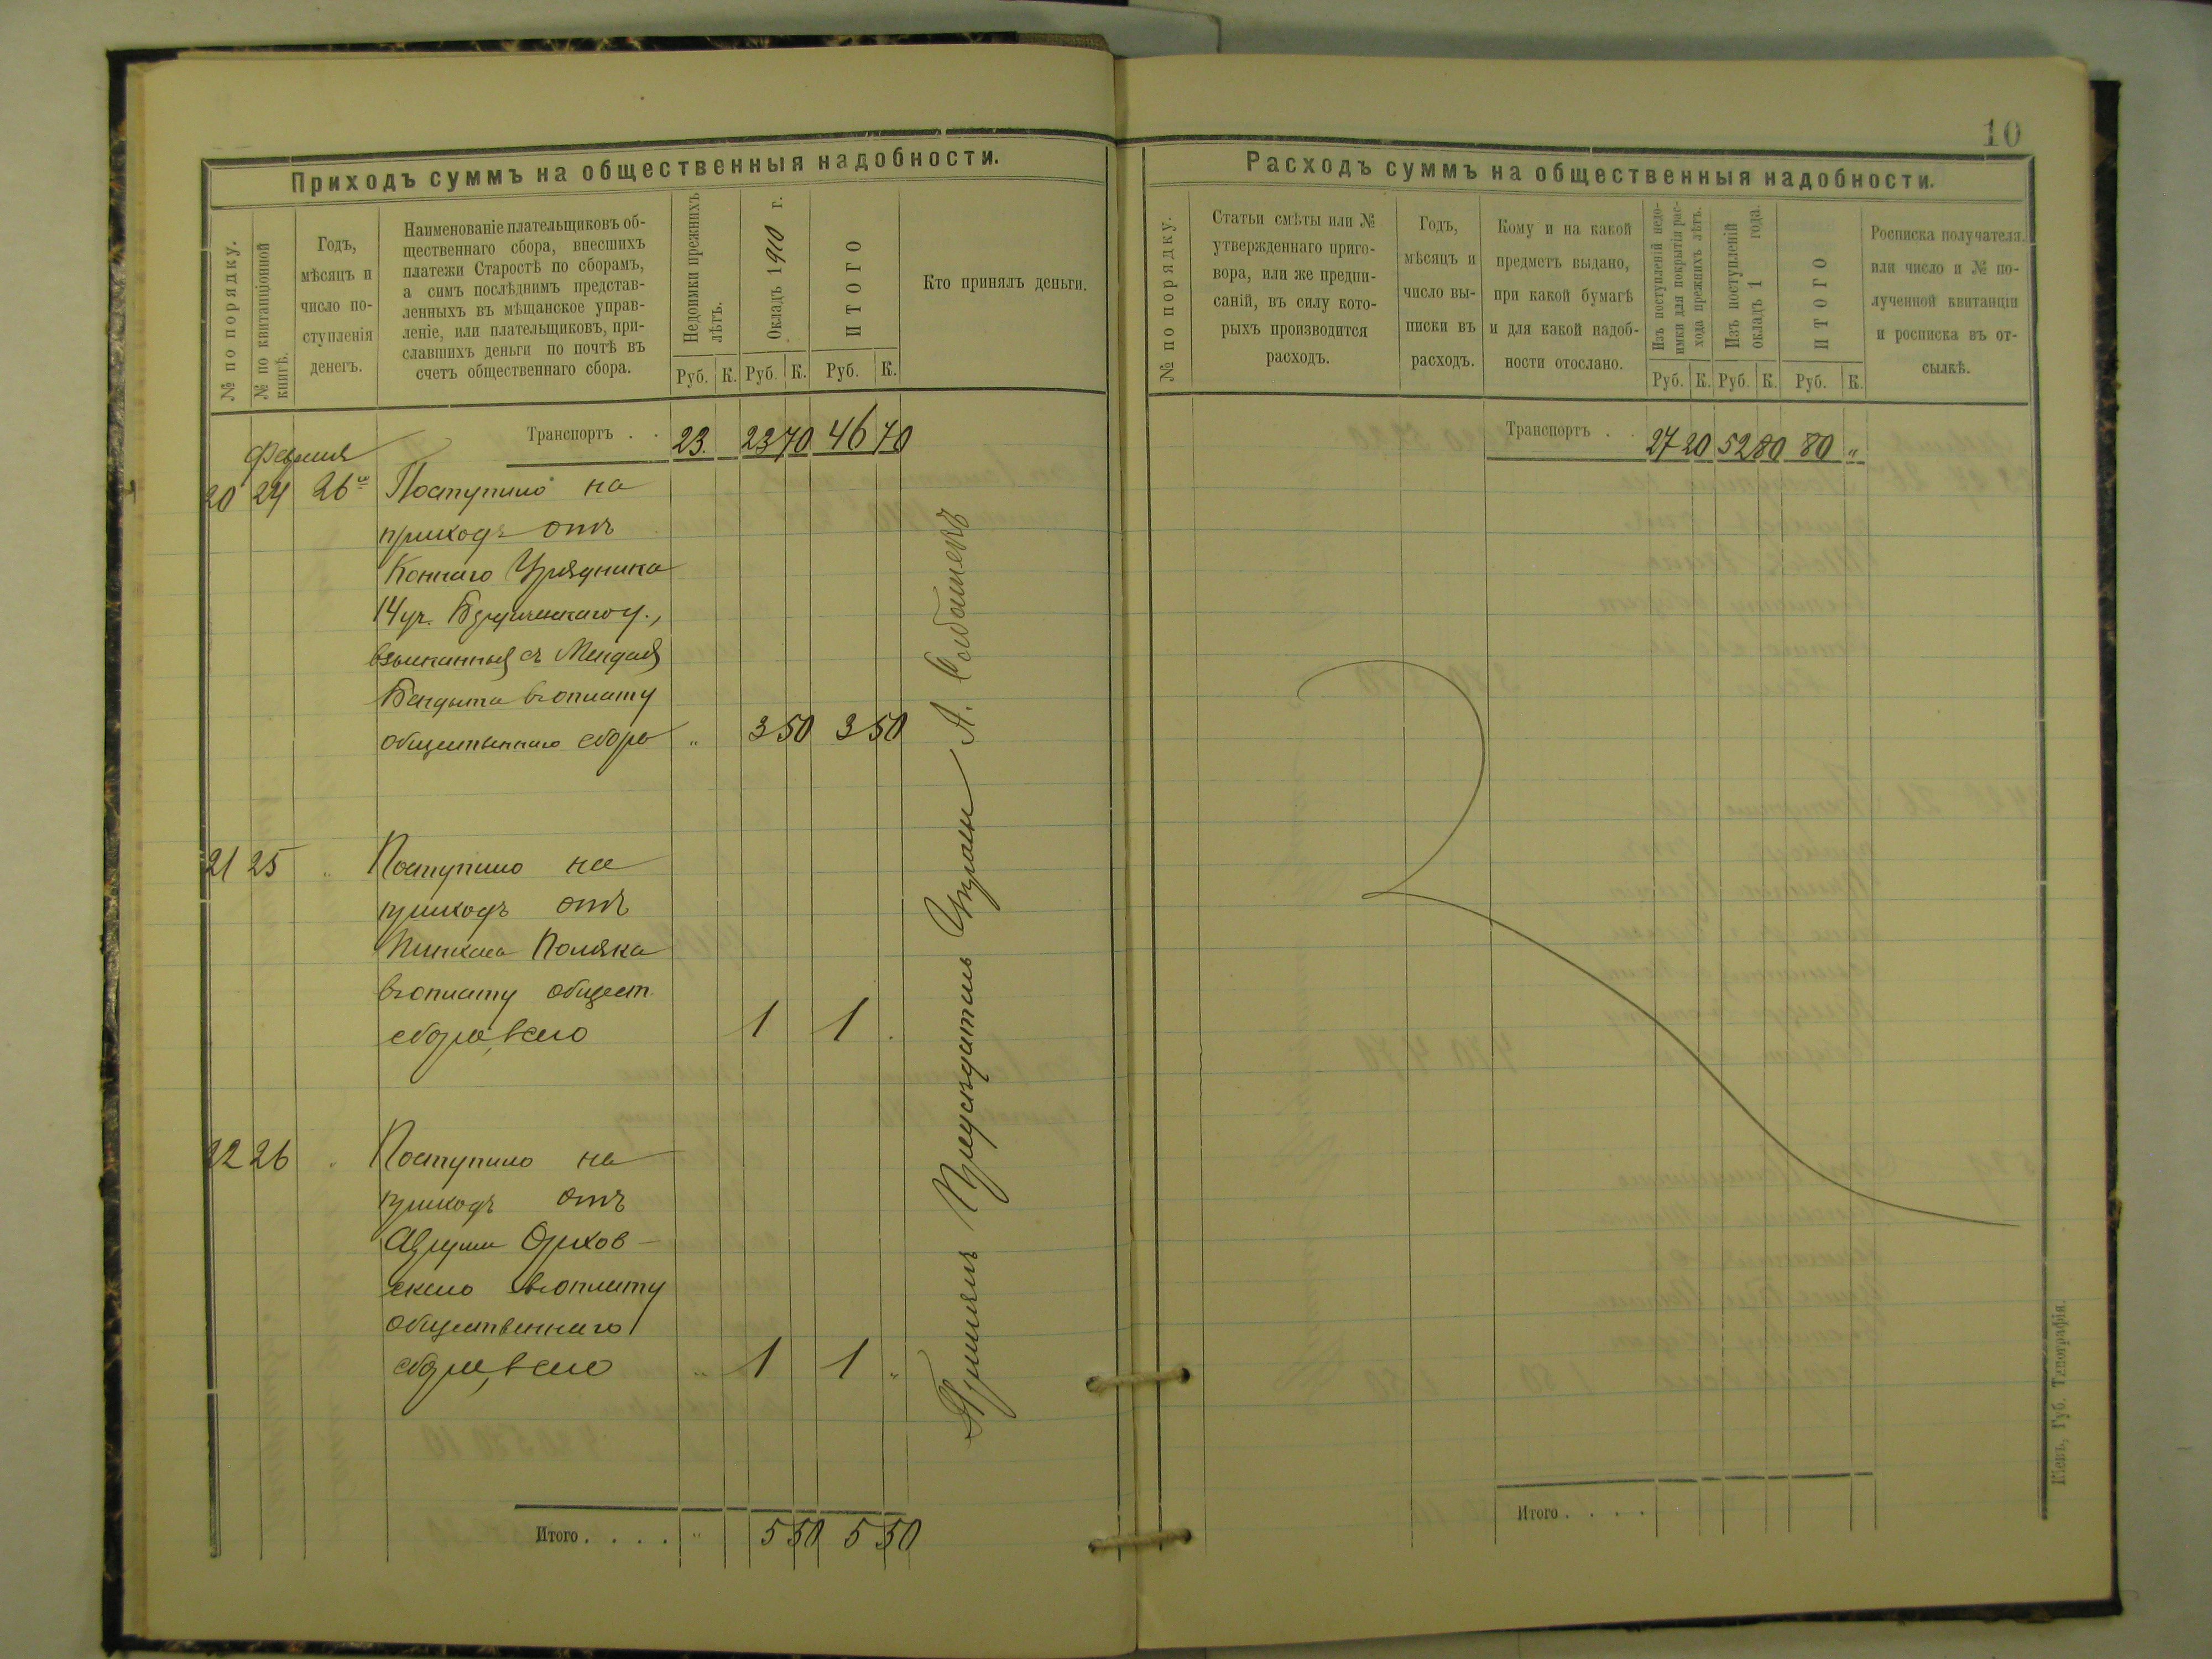 Приходъ суммъ на общественныя надобности.
№ по порядку.
№ по квитанціонной
книгѣ.
Годъ,
мѣсяцъ и
число по-
ступленія
денегъ.
Наименованіе плательщиковъ об-
щественнаго сбора, внесшихъ
платежи Старостѣ по сборамъ,
а симъ послѣднимъ представ-
ленныхъ въ мѣщанское управ-
леніе, или плательщиковъ, при-
славшихъ деньги по почтѣ въ
счетъ общественнаго сбора.
Недоимки прежнихъ
лѣтъ.
Окладъ 1910 г.
ИТОГО
Кто принялъ деньги.
Руб. К. Руб. К. Руб. К.
Транспортъ . . 23. 23 70 46 70
Февраля
20 24 26го Поступило на
приходъ отъ
Коннаго Урядника
14 уч. Бердичевскаго у.,
взысканныя съ Менделя
въ оплату
общественнаго сбора " 3 50 3 50
21 25 " Поступило на
приходъ отъ
Пинкаса Поляка
въ оплату общест.
сбора, всего 1 1 .
22 26 " Поступило на
приходъ отъ
Орхов-
скаго въ оплату
общественнаго
сбора, всего " 1 1 "
Итого . . . . " 5 50 5 50
Принялъ Предсѣдатель Управы А.
10
Расходъ суммъ на общественныя надобности.
№ по порядку.
Статьи смѣты или №
утвержденнаго приго-
вора, или же предпи-
саній, въ силу кото-
рыхъ производится
расходъ.
Годъ,
мѣсяцъ и
число вы-
писки въ
расходъ.
Кому и на какой
предметъ выдано,
при какой бумагѣ
и для какой надоб-
ности отослано.
Изъ поступленій недо-
имки для покрытія рас-
хода прежнихъ лѣтъ.
Изъ поступленій
окладъ 1 года.
ИТОГО
Росписка получателя.
или число и № по-
лученной квитанціи
и росписка въ от-
сылкѣ.
Руб. К. Руб. К. Руб. К.
Транспортъ . . 27 20 52 80 80 "
Итого . . . .
Кіевъ, Губ. Типографія.